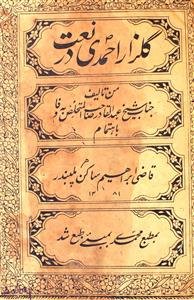 گلزار احمدی در نعت
من تالیف
جناب شیخ عبدالقادر صاحب المتخلص وفا
باہتمام
قاضی ابراہیم ساکن پلبندر
۱۲۸۱
بمطبع محمدی بمبئے طبع شد